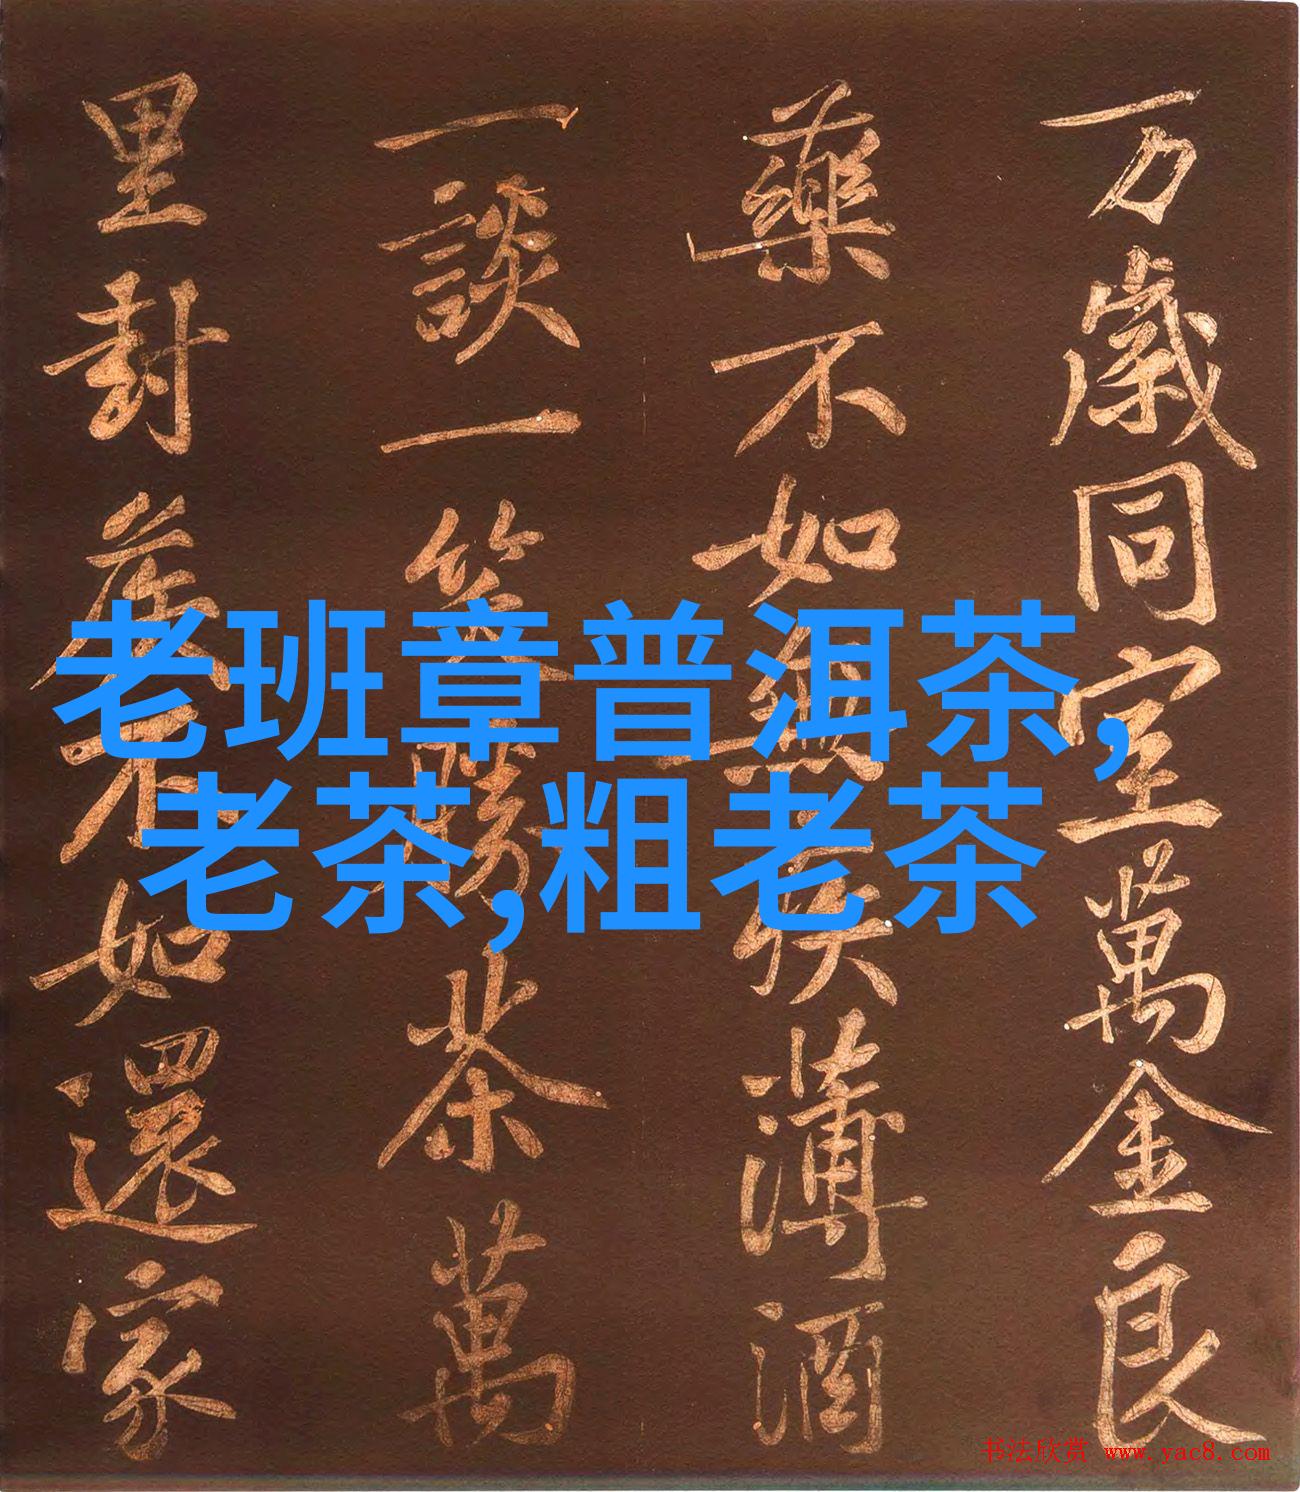 万歲同室萬金良
藥不如無疾薄酒
一談一笑勝茶萬
里封侯不如還家
老班章普洱茶,
老茶,粗老茶
书法欣赏 www.yac8.com